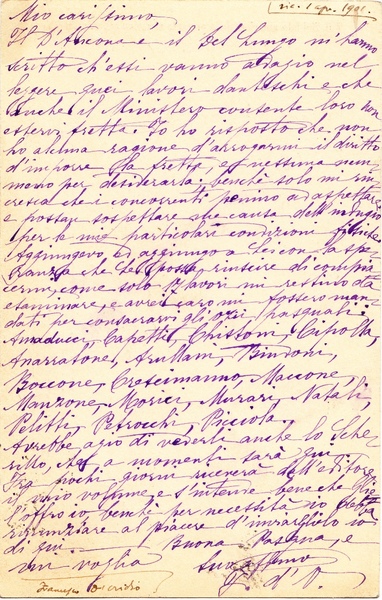 ric. 1 apr. 1901
Mio carissimo,
Il D'Ancona e il Del Lungo m'hanno
scritto ch'essi vanno adagio nel
leggere quei lavori danteschi e che
anche il Ministero consente loro non
esservi fretta. Io ho risposto che non
ho alcuna ragione d'arrogarmi il diritto
d'imporre la fretta, e nessuna nem-
meno per desiderarla benchè solo mi rin-
cresca che i concorrenti penino ad aspettare
e possan sospettare che causa dell'indugio
per le mie particolari condizioni fisiche
Aggiungevo, ed aggiungo a Lei con la spe-
ranza che Le possa riuscire di compia-
cermi, come solo 17 lavori mi restino da
esaminare, e avrei caro mi fossero man-
dati per consacrarvi gli ozi pasquali:
Amaducci, Capetti, Chistoni, Cipolla,
Anarratone, Arullani, Bindoni,
Boccone, Crescimanno, Maccone,
Manzone, Morici, Murari, Natali,
Velitti, Petrocchi, Picciola.
Avrebbe agio di vederli anche lo Sche-
rillo, che a momenti sarà qui.
Tra pochi giorni riceverà dall'editore
il vario volume, e s'intende bene che
l'offro io, benchè per necessità io debba
rinunziare al piacere d'inviarglielo io
di qui. Buona Pasqua, e
mi voglia Suo
F. d'O.
Francesco